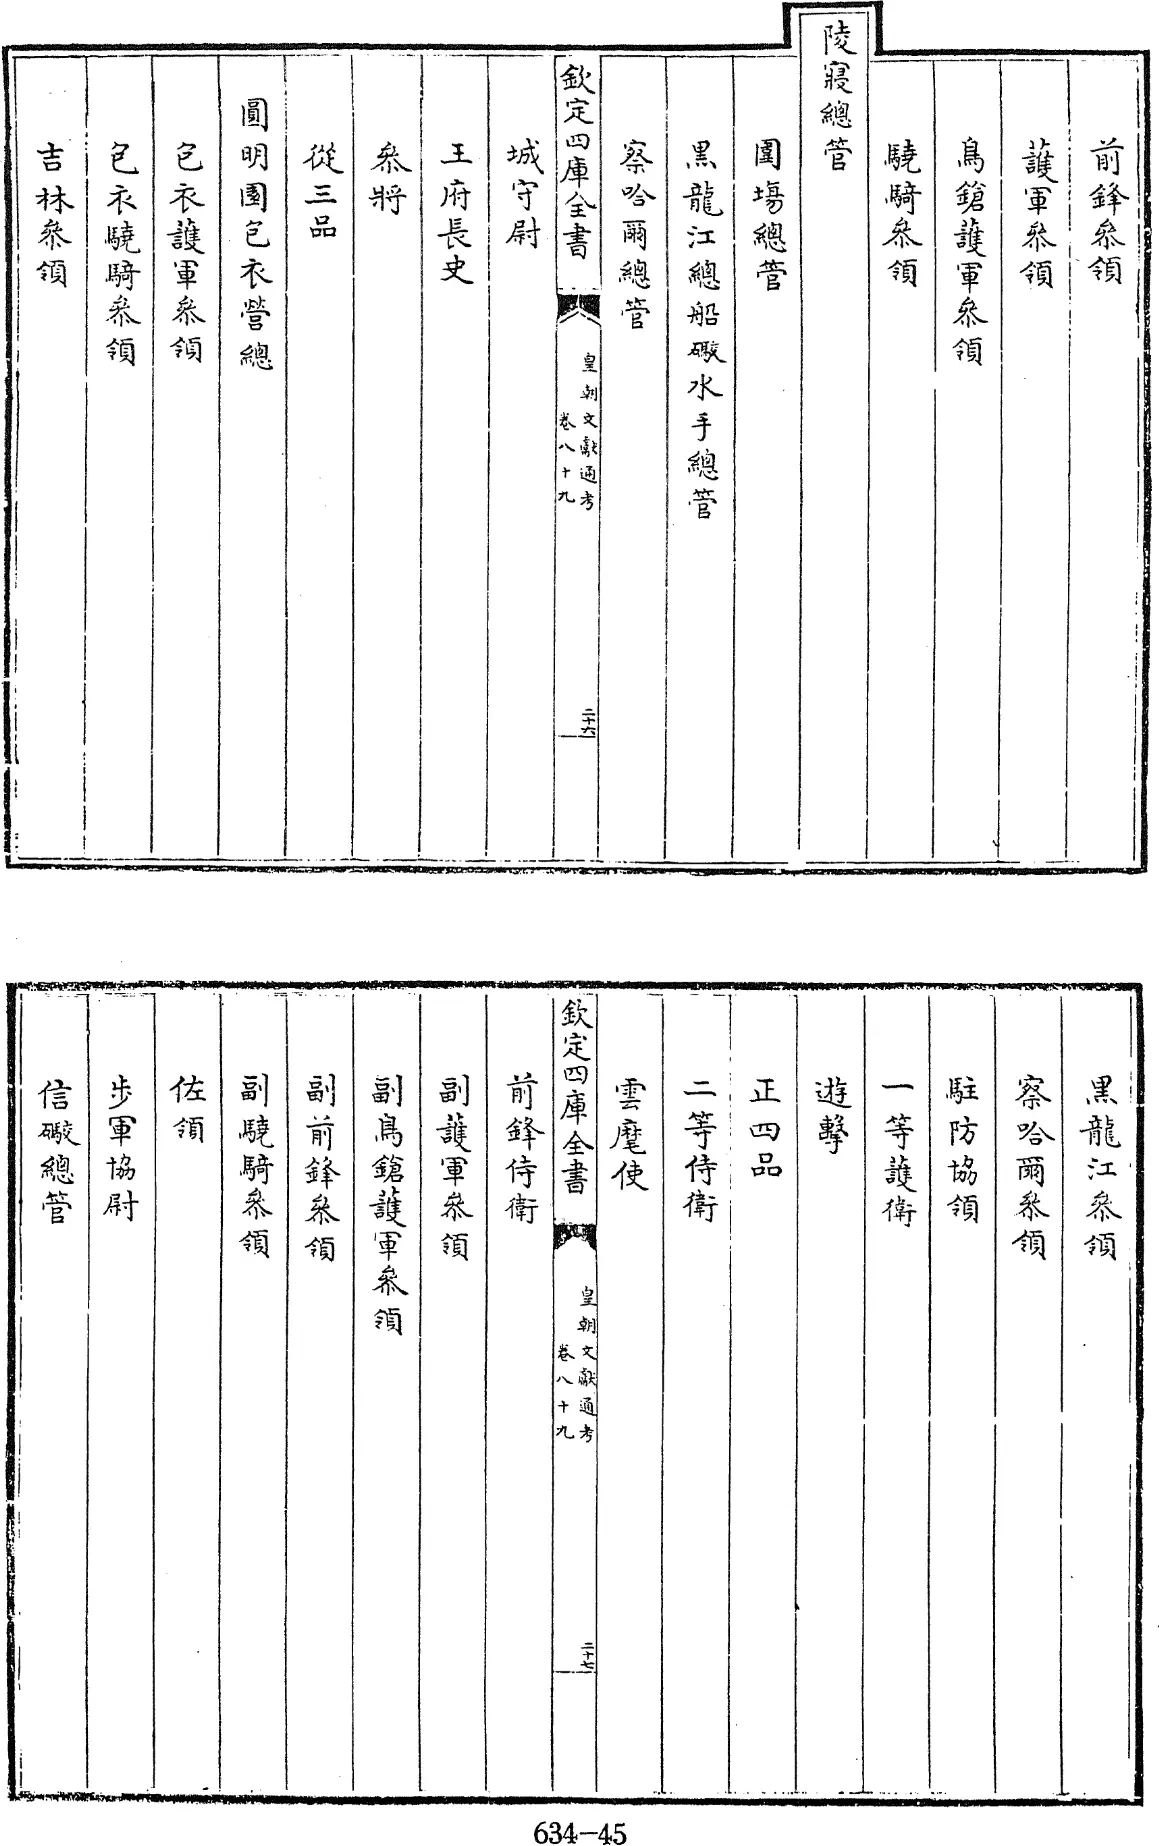 前鋒叅領
護軍叅領
鳥鎗護軍叅領
驍騎叅領
陵寢總管
圍場總管
黒龍江總船礮水手總管
察哈爾總管
欽定四庫全書
皇朝文獻通考
卷八十九
二十六
城守尉
王府長史
叅將
從三品
圓明園包衣營總
包衣護軍叅領
包衣驍騎叅領
吉林叅領
黒龍江叅領
察哈爾叅領
駐防協領
一等護衛
遊擊
正四品
二等侍衛
雲麾使
欽定四庫全書
皇朝文獻通考
卷八十九
二十七
前鋒侍衛
副護軍叅領
副鳥鎗護軍叅領
副前鋒叅領
副驍騎叅領
佐領
步軍協尉
信礮總管
634-45